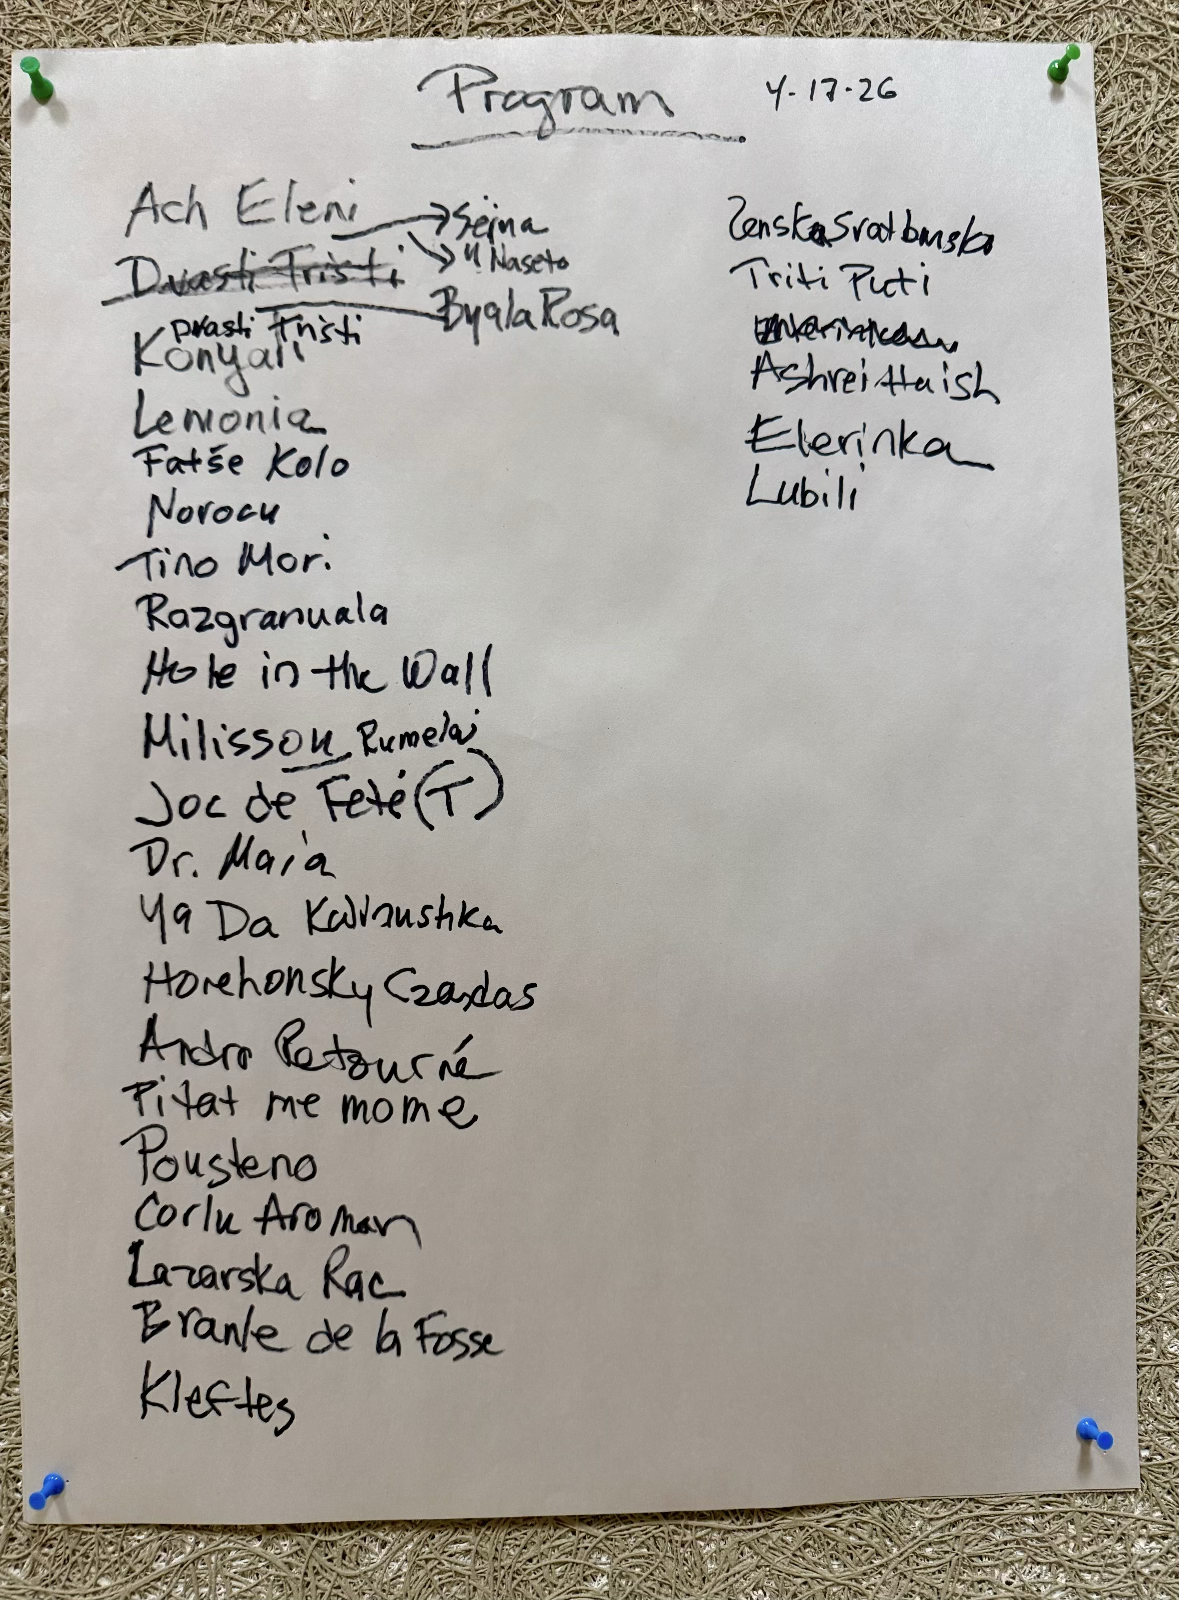 Program 4-17-26
Ach Eleni
Sejna
Dvasti Tristi
" Naseto
Byala Rosa
Dvasti Tristi
Konyali
Lemonia
Fatše Kolo
Norocu
Tino Mori
Razgranuala
Hole in the Wall
Milisson Rumelaj
Joc de Feté (T)
Dr. Maia
Ya Da Kalinushka
Horehonsky Czardas
Andro Retourné
Pitat me mome
Pousteno
Corlu Aroman
Lazarska Rac
Branle de la Fosse
Kleftes
Zenska Svatbarska
Triti Puti
Ashrei Haish
Elerinka
Lubili